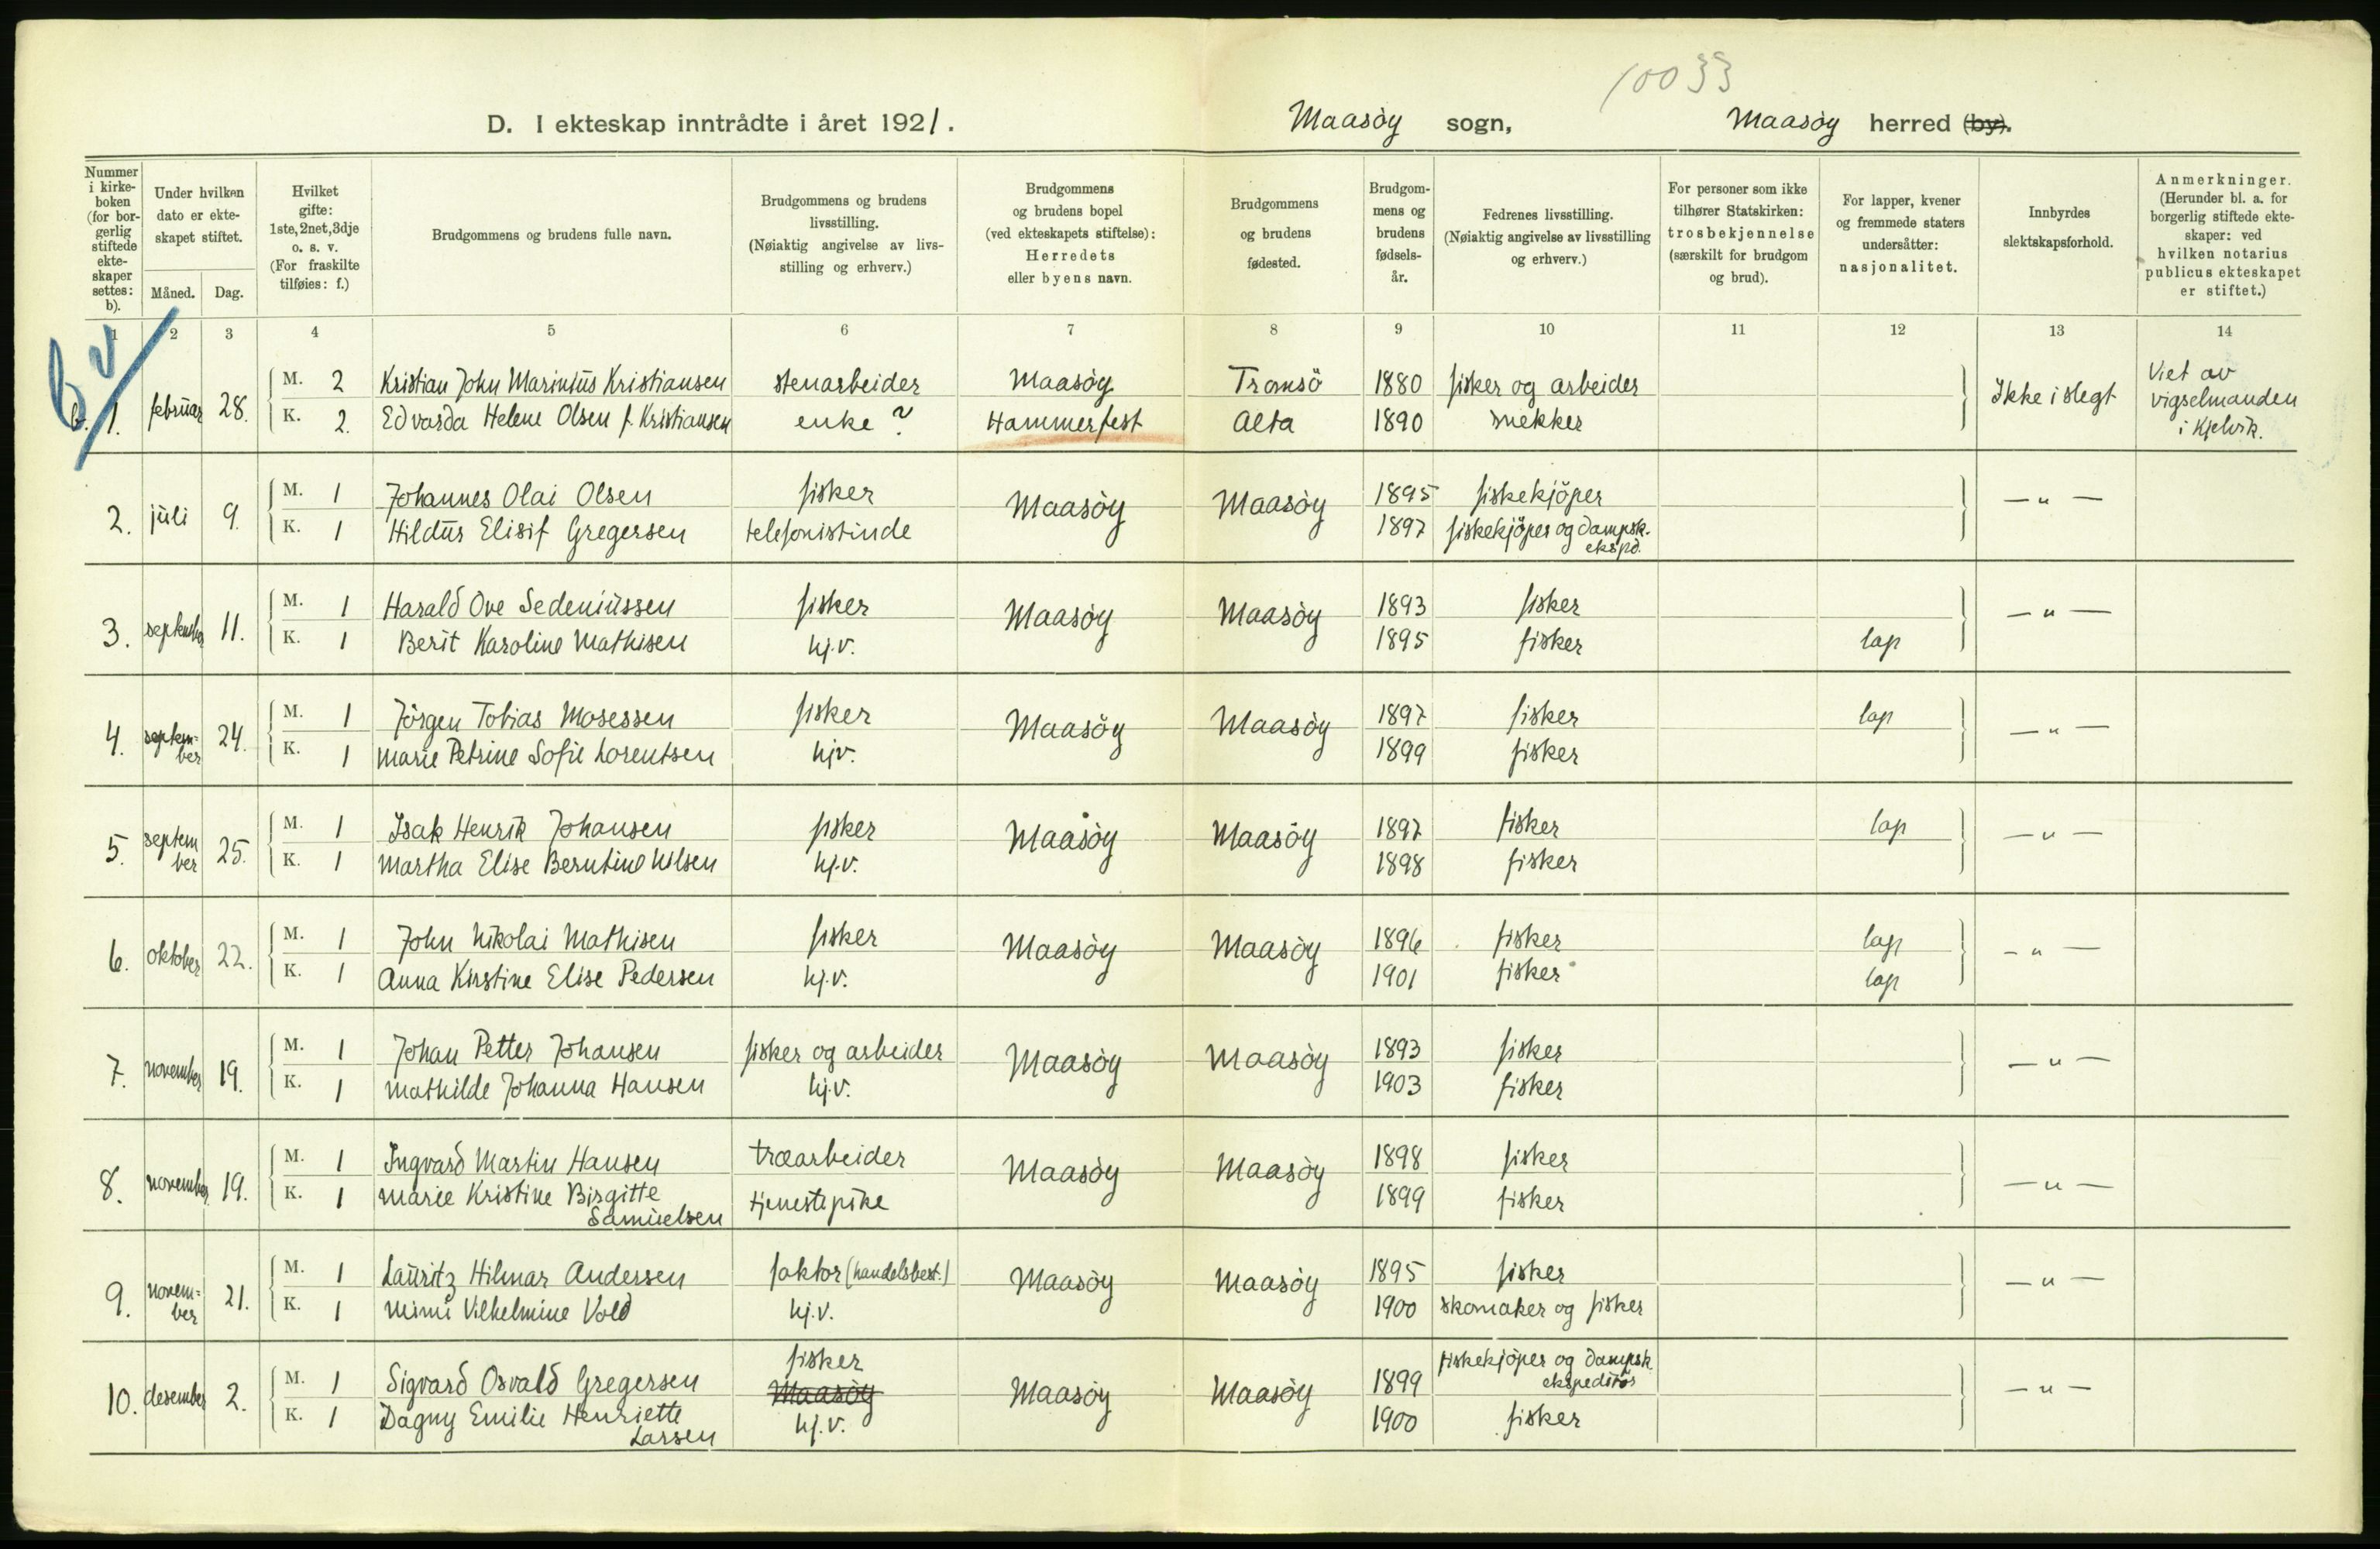 10033
D. I ekteskap inntrådte i året 1921. Maasøy sogn, Maasøy herred (by).
Nummer i kirke- boken (for bor- gerlig stiftede ekte- skaper settes: b).
Under hvilken dato er ekte- skapet stiftet.
Måned. Dag.
Hvilket gifte: 1ste, 2net, 3dje o. s. v. (For fraskilte tilføies: f.)
Brudgommens og brudens fulle navn.
Brudgommens og brudens livsstilling. (Nøiaktig angivelse av livs- stilling og erhverv.)
Brudgommens og brudens bopel (ved ekteskapets stiftelse): Herredets eller byens navn.
Brudgommens og brudens fødested.
Brudgom- mens og brudens fødsels- år.
Fedrenes livsstilling. (Nøiaktig angivelse av livsstilling og erhverv.)
For personer som ikke tilhører Statskirken: trosbekjennelse (særskilt for brudgom og brud).
For lapper, kvener og fremmede staters undersåtter: nasjonalitet.
Innbyrdes slektskapsforhold.
Anmerkninger. (Herunder bl. a. for borgerlig stiftede ekte- skaper: ved hvilken notarius publicus ekteskapet er stiftet.)
1 2 3 4 5 6 7 8 9 10 11 12 13 14
b. 1. februar 28. M. 2 Kristian John Marinius Kristiansen stenarbeider Maasøy Tromsö 1880 fisker og arbeider Ikke i slegt Viet av vigselmanden i Kjelvik.
K. 2. Edvarda Helene Olsen f. Kristiansen enke ? Hammerfest Alta 1890 snekker
2. juli 9. M. 1 Johannes Olai Olsen fisker Maasøy Maasøy 1895 fiskekjöper — " —
K. 1 Hildur Elisif Gregersen telefonistinde 1897 fiskekjöper og dampsk. ekspd.
3. september 11. M. 1 Harald Ove Sedeniussen fisker Maasøy Maasøy 1893 fisker — " —
K. 1 Berit Karoline Mathisen hj.v. 1895 fisker lap
4. septem= ber 24. M. 1 Jörgen Tobias Mosessen fisker Maasøy Maasøy 1897 fisker lap — " —
K. 1 Marie Petrine Sofie Lorentsen hjv. 1899 fisker
5. septem ber 25. M. 1 Isak Henrik Johansen fisker Maasøy Maasøy 1897 fisker lap — " —
K. 1 Martha Elise Berntine Nilsen hj.v. 1898 fisker
6. oktober 22. M. 1 John Nikolai Mathisen fisker Maasøy Maasøy 1896 fisker lap — " —
K. 1 Anna Kirstine Elise Pedersen hj.v. 1901 fisker lap
7. november 19. M. 1 Johan Petter Johansen fisker og arbeider Maasøy Maasøy 1893 fisker — " —
K. 1 Mathilde Johanna Hansen hj.v. 1903 fisker
8. november 19. M. 1 Ingvard Martin Hansen træarbeider Maasøy Maasøy 1898 fisker — " —
K. 1 Marie Kristine Birgitte Samuelsen tjenestepike 1899 fisker
9. novem= ber 21. M. 1 Lauritz Hilmar Andersen faktor (handelsbest.) Maasøy Maasøy 1895 fisker — " —
K. 1 Mimi Vilhelmine Vold hj.v. 1900 skomaker og fisker
10. desember 2. M. 1 Sigvard Osvald Gregersen fisker Maasøy Maasøy Maasøy 1899 fiskekjöper og dampsk ekspeditör — " —
K. 1 Dagny Emilie Henriette Larsen hj.v. 1900 fisker